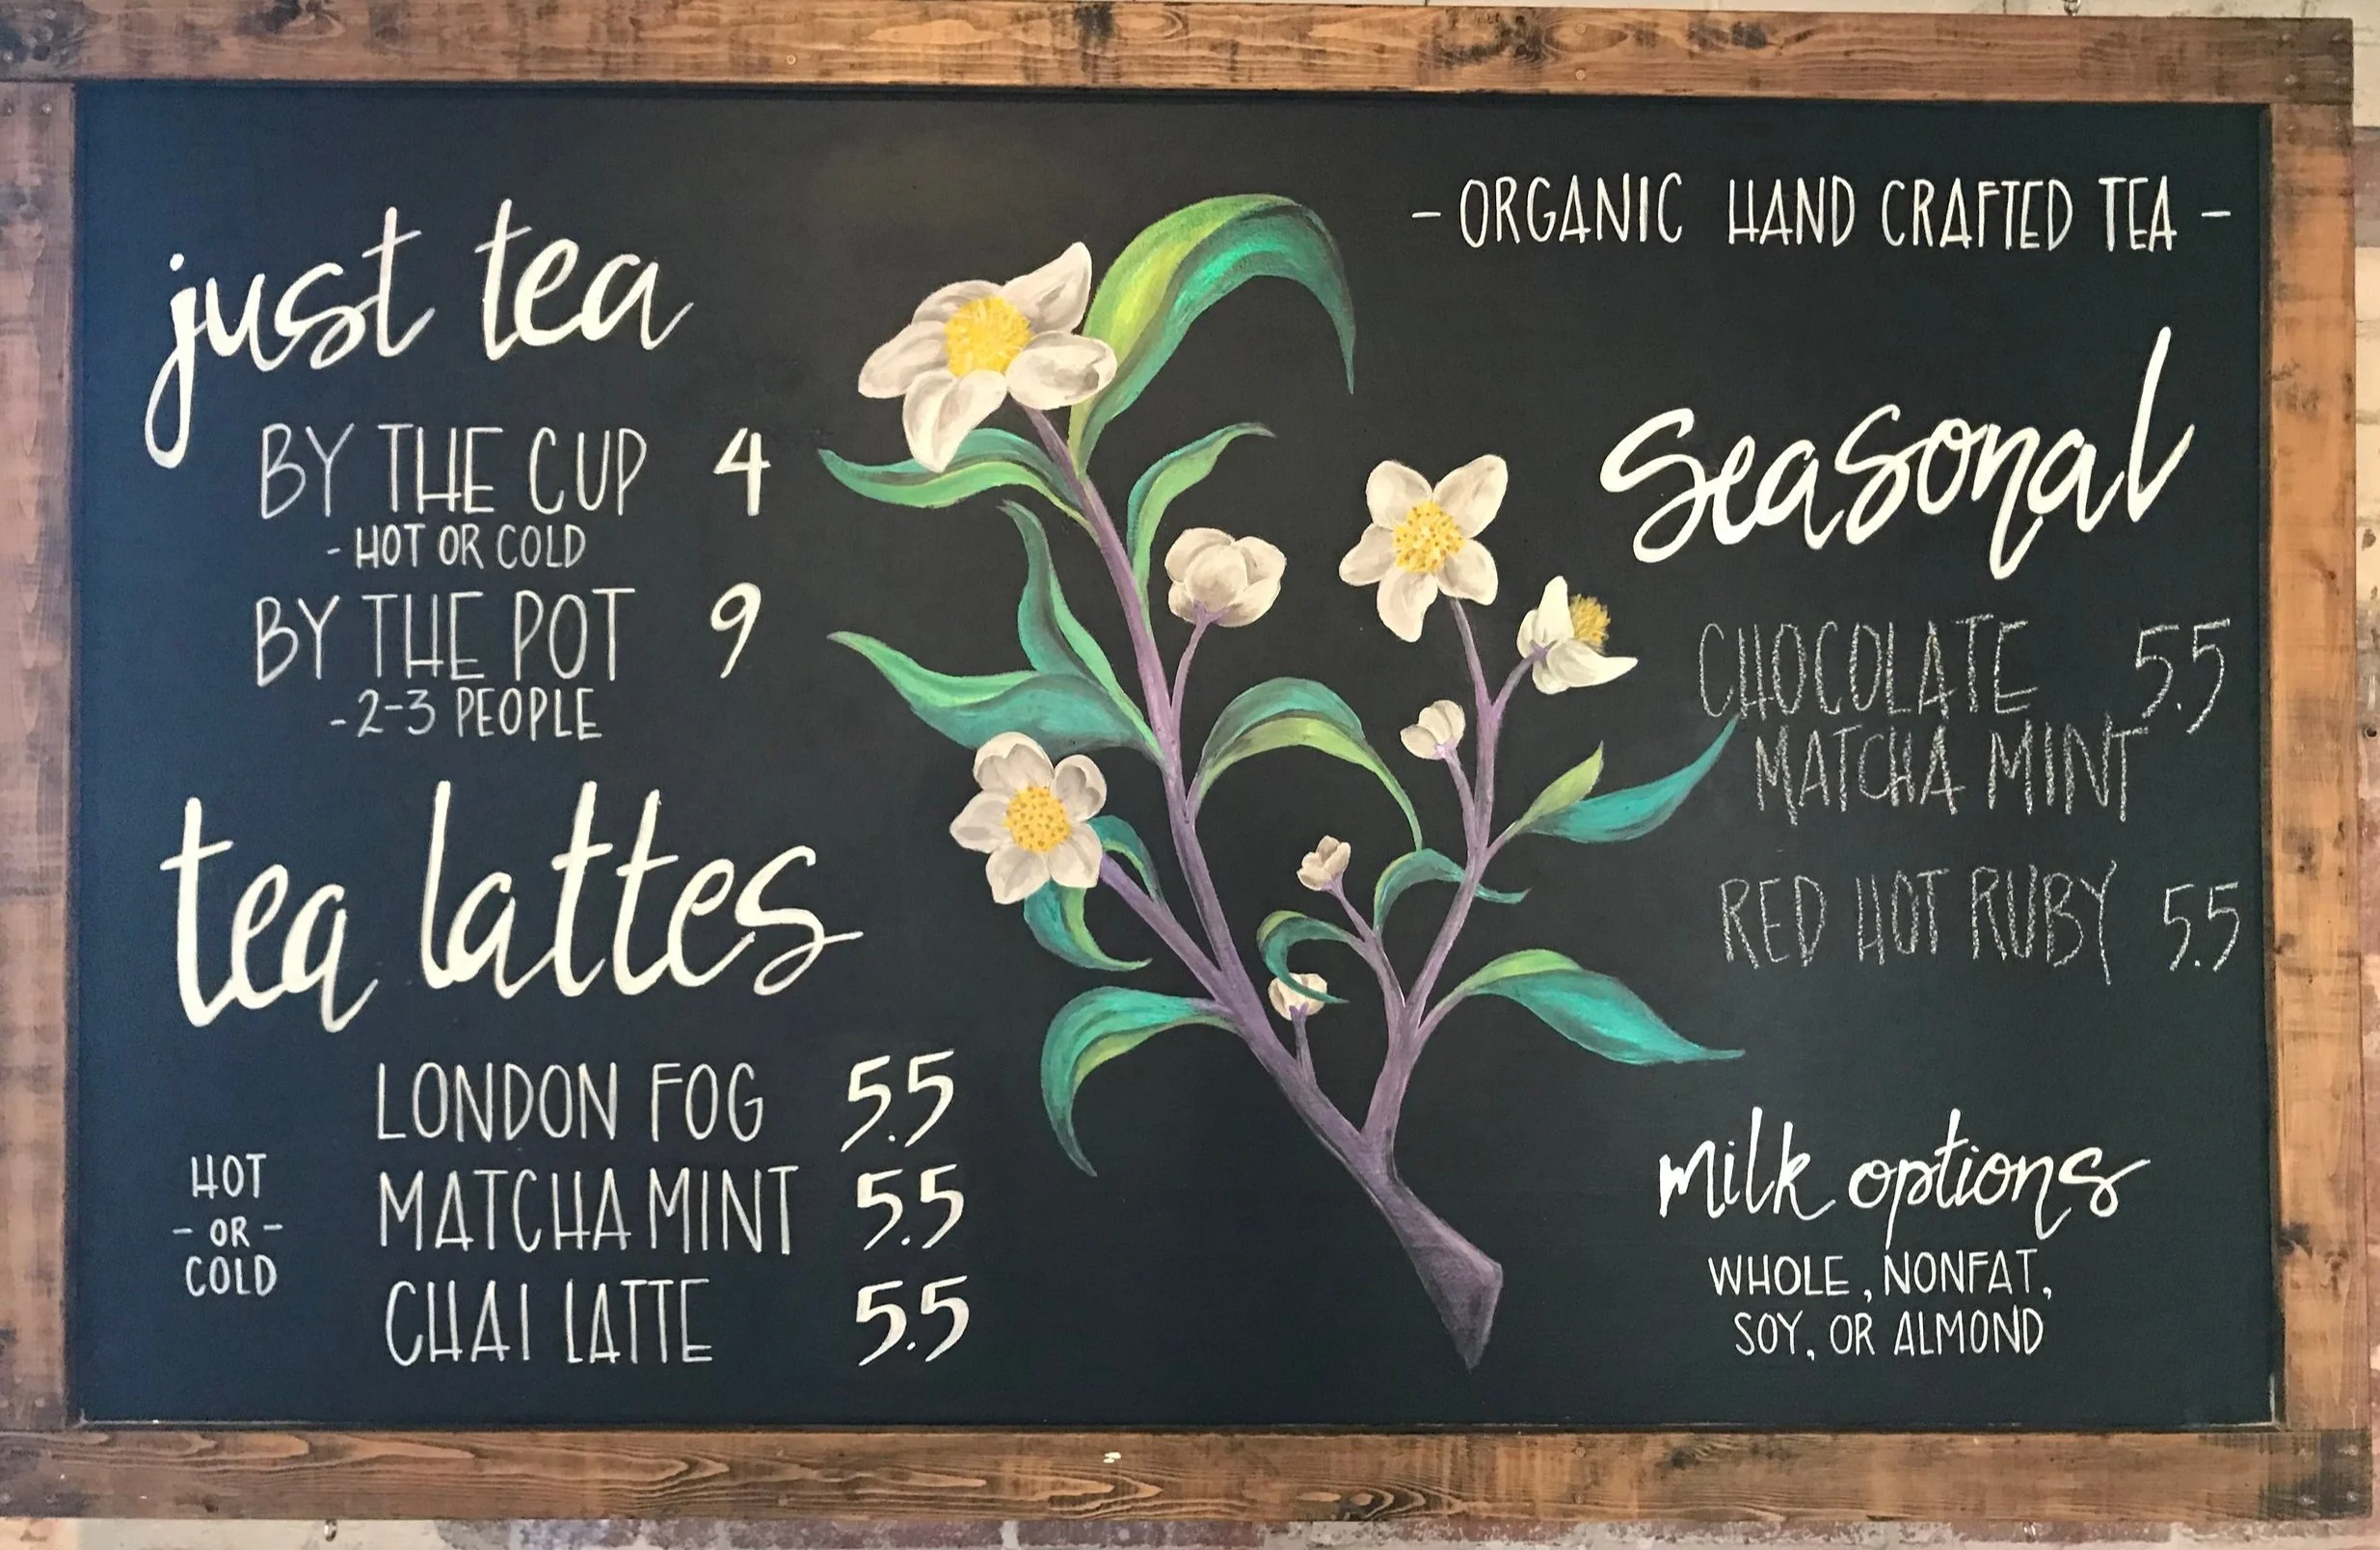 just tea
BY THE CUP 4
- HOT OR COLD
BY THE POT 9
- 2-3 PEOPLE
tea lattes
HOT
- OR -
COLD
LONDON FOG 5.5
MATCHA MINT 5.5
CHAI LATTE 5.5
- ORGANIC HAND CRAFTED TEA -
seasonal
CHOCOLATE 5.5
MATCHA MINT
RED HOT RUBY 5.5
milk options
WHOLE, NONFAT,
SOY, OR ALMOND